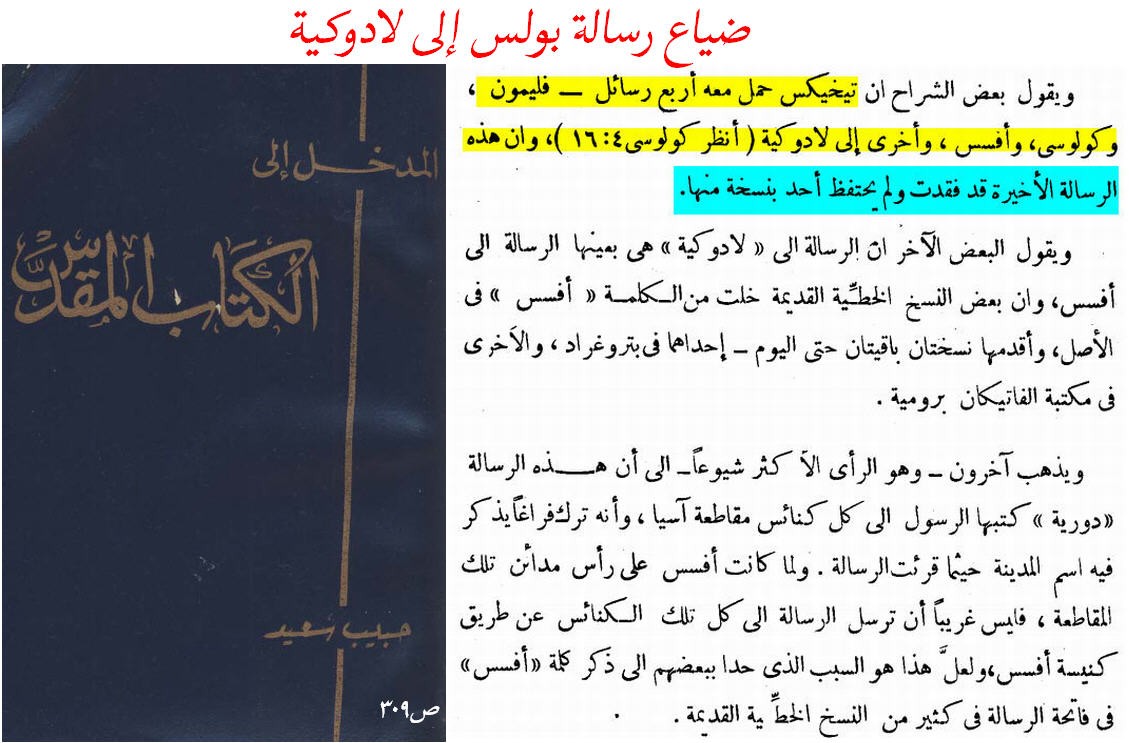 ضياع رسالة بولس إلى لادوكية
المدخل إلى
الكتاب المقدّس
حبيب سعيد
ص٣٠٩
ويقول بعض الشراح ان تيخيكس حمل معه أربع رسائل — فليمون ،
وكولوسى، وأفسس ، وأخرى إلى لادوكية ( أنظر كولوسى٤ : ١٦ )، وان هذه
الرسالة الأخيرة قد فقدت ولم يحتفظ أحد بنسخة منها.
ويقول البعض الآخر انّ الرسالة الى « لادوكية » هى بعينها الرسالة الى
أفسس، وان بعض النسخ الخطِّية القديمة خلت من الكلمة « أفسس » فى
الأصل، وأقدمها نسختان باقيتان حتى اليوم – إحداهما فى بتروغراد ، والآخرى
فى مكتبة الفاتيكان برومية .
ويذهب آخرون – وهو الرأى الأ كثر شيوعاً – الى أن هذه الرسالة
«دورية » كتبها الرسول الى كل كنائس مقاطعة آسيا ، وأنه ترك فراغاً يذكر
فيه اسم المدينة حيثما قرئت الرسالة . ولما كانت أفسس على رأس مدائن تلك
المقاطعة ، فليس غريباً أن ترسل الرسالة الى كل تلك الكنائس عن طريق
كنيسة أفسس، ولعلَّ هذا هو السبب الذى حدا ببعضهم الى ذكر كلمة «أفسس»
فى فاتحة الرسالة فى كثير من النسخ الخطِّية القديمة .